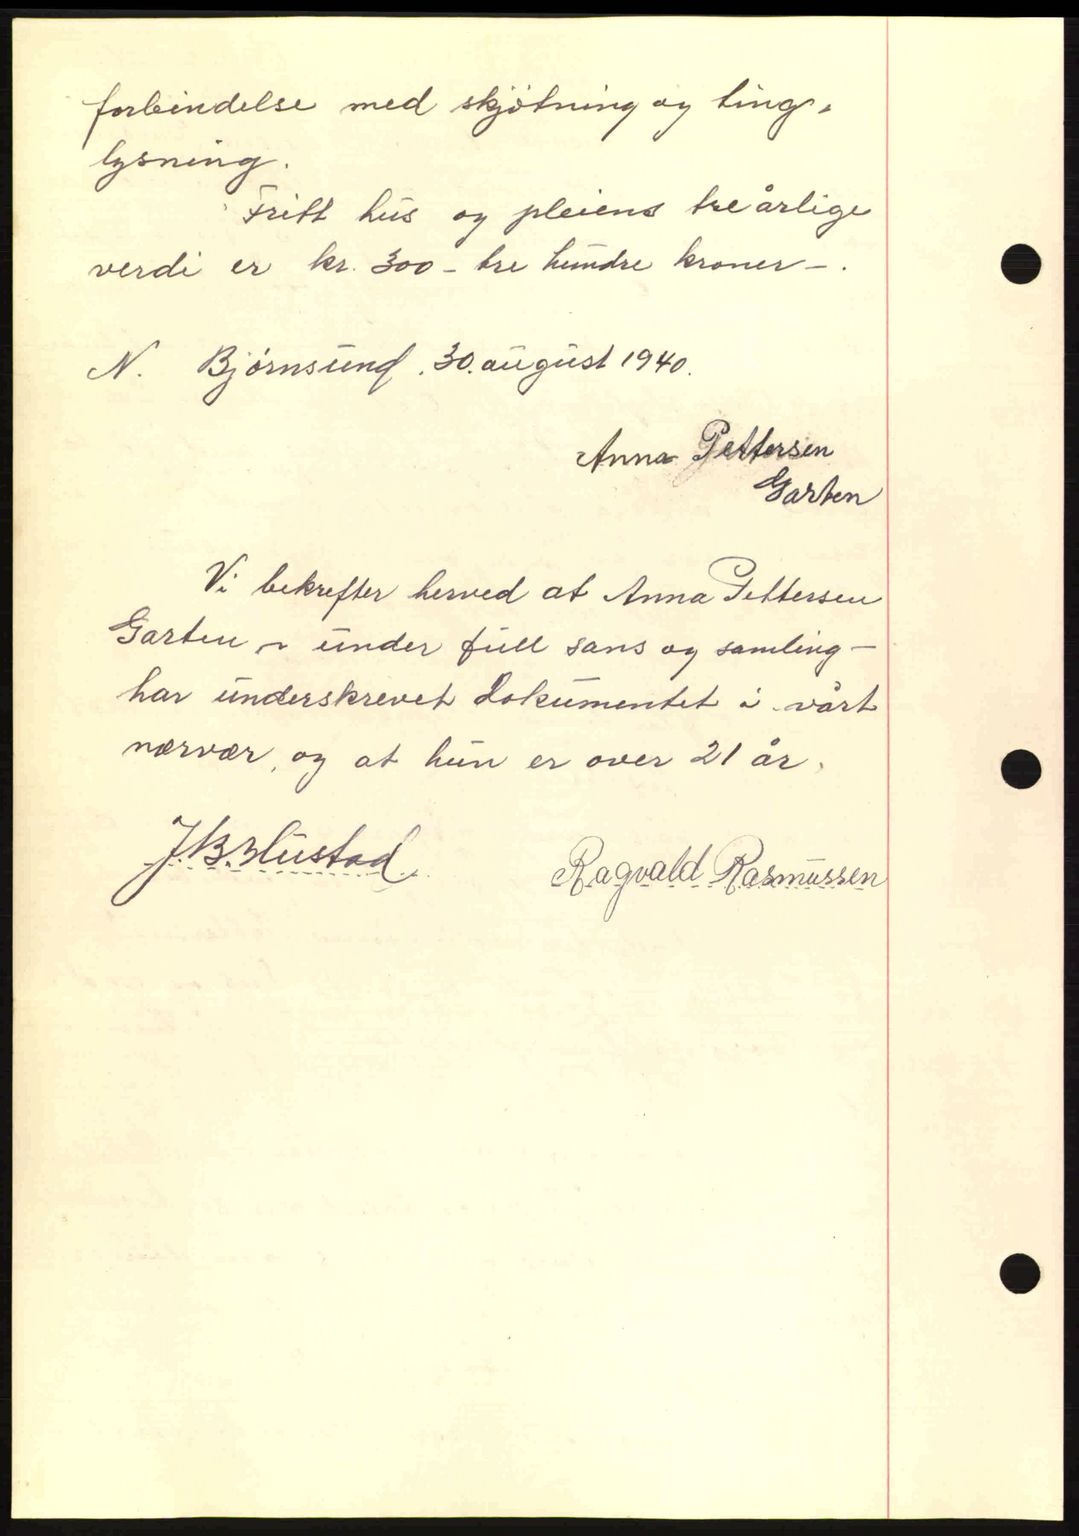 forbindelse med skjøtning og ting-
lysning.
Fritt hus og pleiens tre årlige
verdi er kr. 300 - tre hundre kroner -.
N. Bjørnsund, 30. august 1940.
Anna Pettersen
Garten
Vi bekrefter herved at Anna Pettersen
Garten under full sans og samling -
har underskrevet dokumentet i vårt
nærvær, og at hun er over 21 år.
J.B. Hustad Ragvald Rasmussen